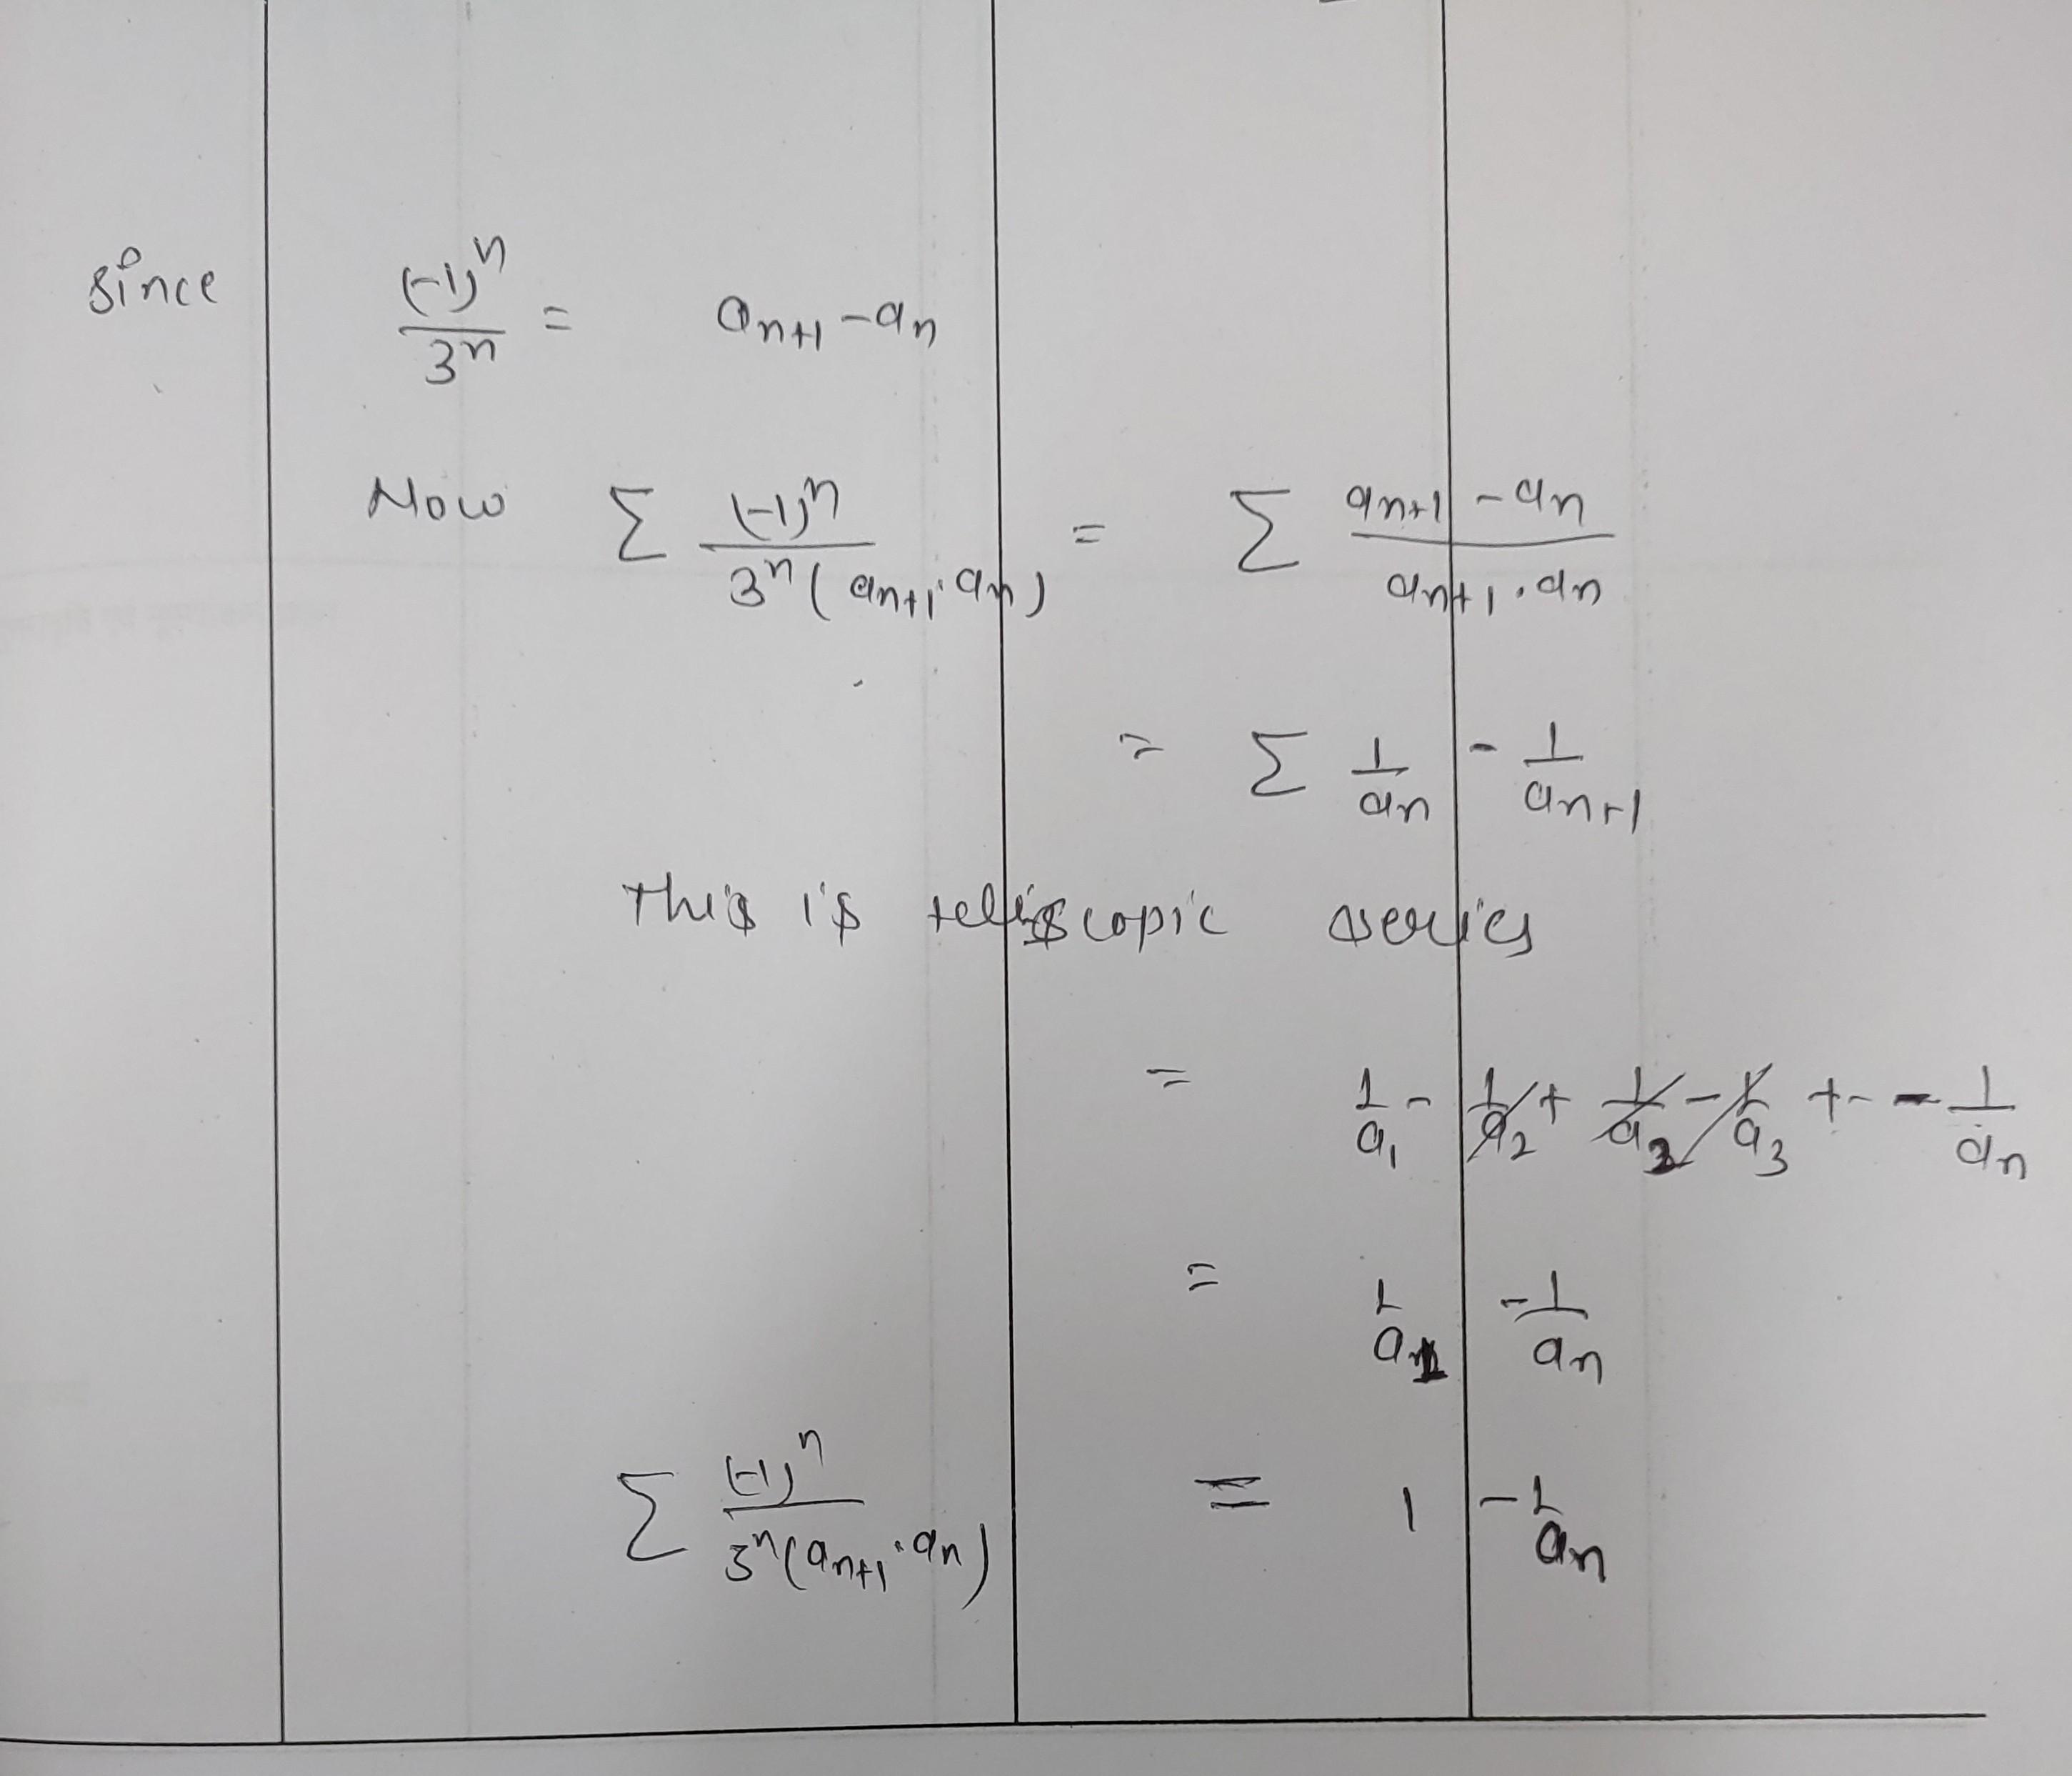 since (-1)^n / 3^n = a_{n+1} - a_n
Now Σ (-1)^n / 3^n (a_{n+1} · a_n) = Σ (a_{n+1} - a_n) / (a_{n+1} · a_n)
= Σ 1/a_n - 1/a_{n+1}
This is teliscopic series
= 1/a_1 - 1/a_2 + 1/a_2 - 1/a_3 + - - 1/a_n
= 1/a_1 - 1/a_n
Σ (-1)^n / 3^n (a_{n+1} · a_n) = 1 - 1/a_n